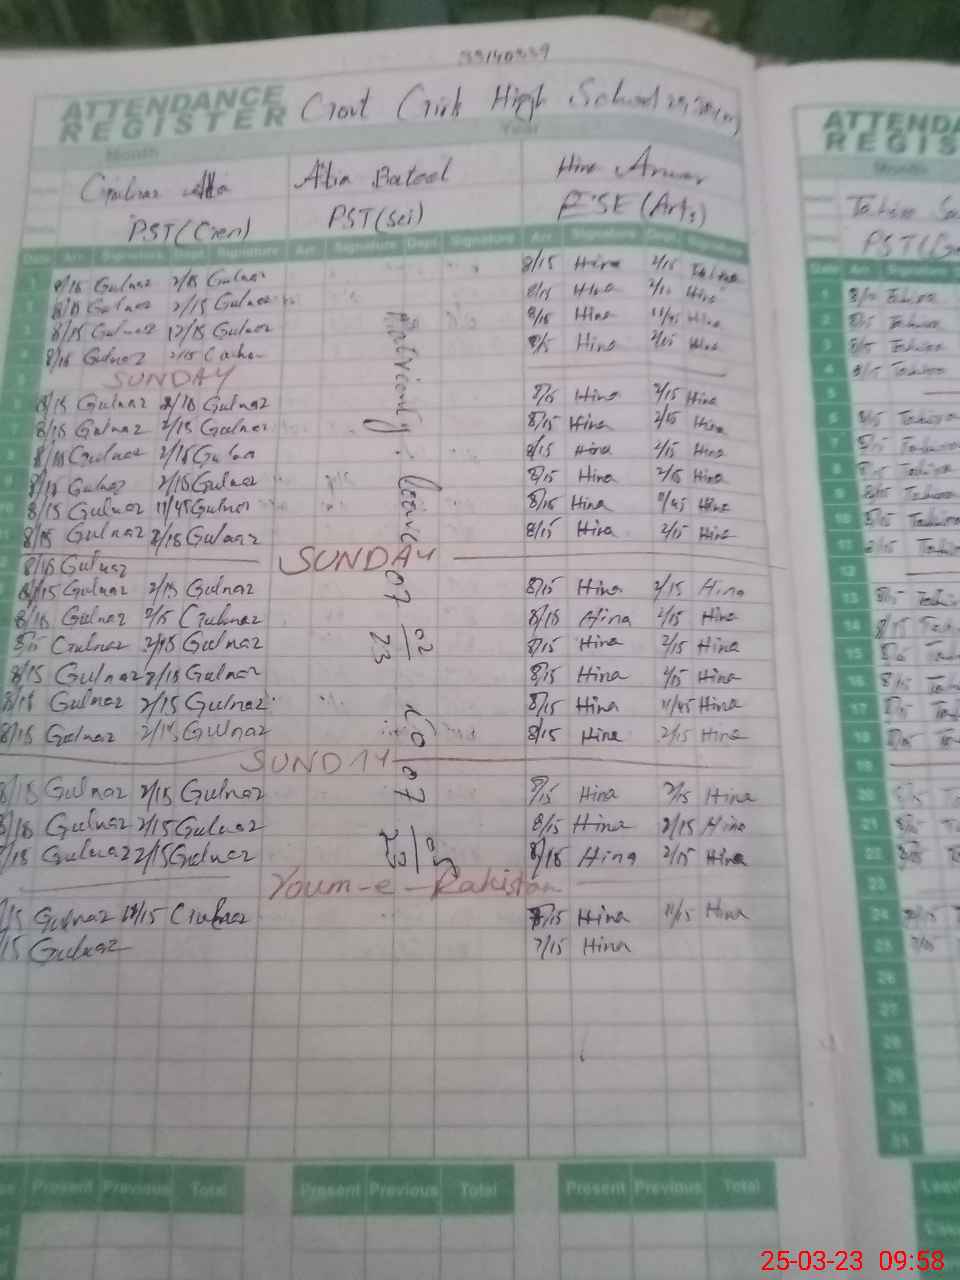 33140339
ATTENDANCE REGISTER Govt Girls High School
Month Year
Gulnaz Atta Atia Batool Hina Anwar
PST(Gen) PST(Sci) ESE(Arts)
Date Arr. Signature Dept. Signature Arr. Signature Dept. Signature Arr. Signature Dept. Signature
8/15 Gulnaz 2/15 Gulnaz 8/15 Hina 2/15
8/15 Gulnaz 2/15 Gulnaz 8/15 Hina 2/15 Hina
8/15 Gulnaz 12/15 Gulnaz 8/15 Hina 11/45 Hina
8/15 Gulnaz 2/15 8/15 Hina 2/15 Hina
SUNDAY
8/15 Gulnaz 2/15 Gulnaz 8/15 Hina 2/15 Hina
8/15 Gulnaz 2/15 Gulnaz 8/15 Hina 2/15 Hina
8/15 Gulnaz 2/15 Gulnaz 8/15 Hina 2/15 Hina
8/15 Gulnaz 2/15 Gulnaz 8/15 Hina 2/15 Hina
8/15 Gulnaz 11/45 Gulnaz 8/15 Hina 11/45 Hina
8/15 Gulnaz 2/15 Gulnaz 8/15 Hina 2/15 Hina
SUNDAY
8/15 Gulnaz
8/15 Gulnaz 2/15 Gulnaz 8/15 Hina 2/15 Hina
8/15 Gulnaz 2/15 Gulnaz 8/15 Hina 2/15 Hina
8/15 Gulnaz 2/15 Gulnaz 8/15 Hina 2/15 Hina
8/15 Gulnaz 2/15 Gulnaz 8/15 Hina 2/15 Hina
8/15 Gulnaz 2/15 Gulnaz 8/15 Hina 11/45 Hina
8/15 Gulnaz 2/15 Gulnaz 8/15 Hina 2/15 Hina
SUNDAY
8/15 Gulnaz 2/15 Gulnaz 8/15 Hina 2/15 Hina
8/15 Gulnaz 2/15 Gulnaz 8/15 Hina 2/15 Hina
8/15 Gulnaz 2/15 Gulnaz 8/15 Hina 2/15 Hina
Youm-e-Pakistan
Gulnaz 11/15 Gulnaz 8/15 Hina 11/15 Hina
Gulnaz 7/15 Hina
Maternity leave 07 02/23 to 07 05/23
Present Previous Total Present Previous Total Present Previous Total
ATTENDA
REGIS
Month
Tahira
Date Arr.
1 Tahira
2 8/15 Tahira
3 8/15 Tahira
4 8/15 Tahira
5
6 8/15 Tahira
7 8/15 Tahira
8 8/15 Tahira
9 8/15 Tahira
10 8/15 Tahira
11 8/15 Tahira
12
13 8/15
14 8/15
15 8/15
16 8/15
17 8/15
18 8/15
19
20 8/15
21 8/15
22 8/15
23
24 8/15
25 7/15
26
27
28
29
30
31
25-03-23 09:58